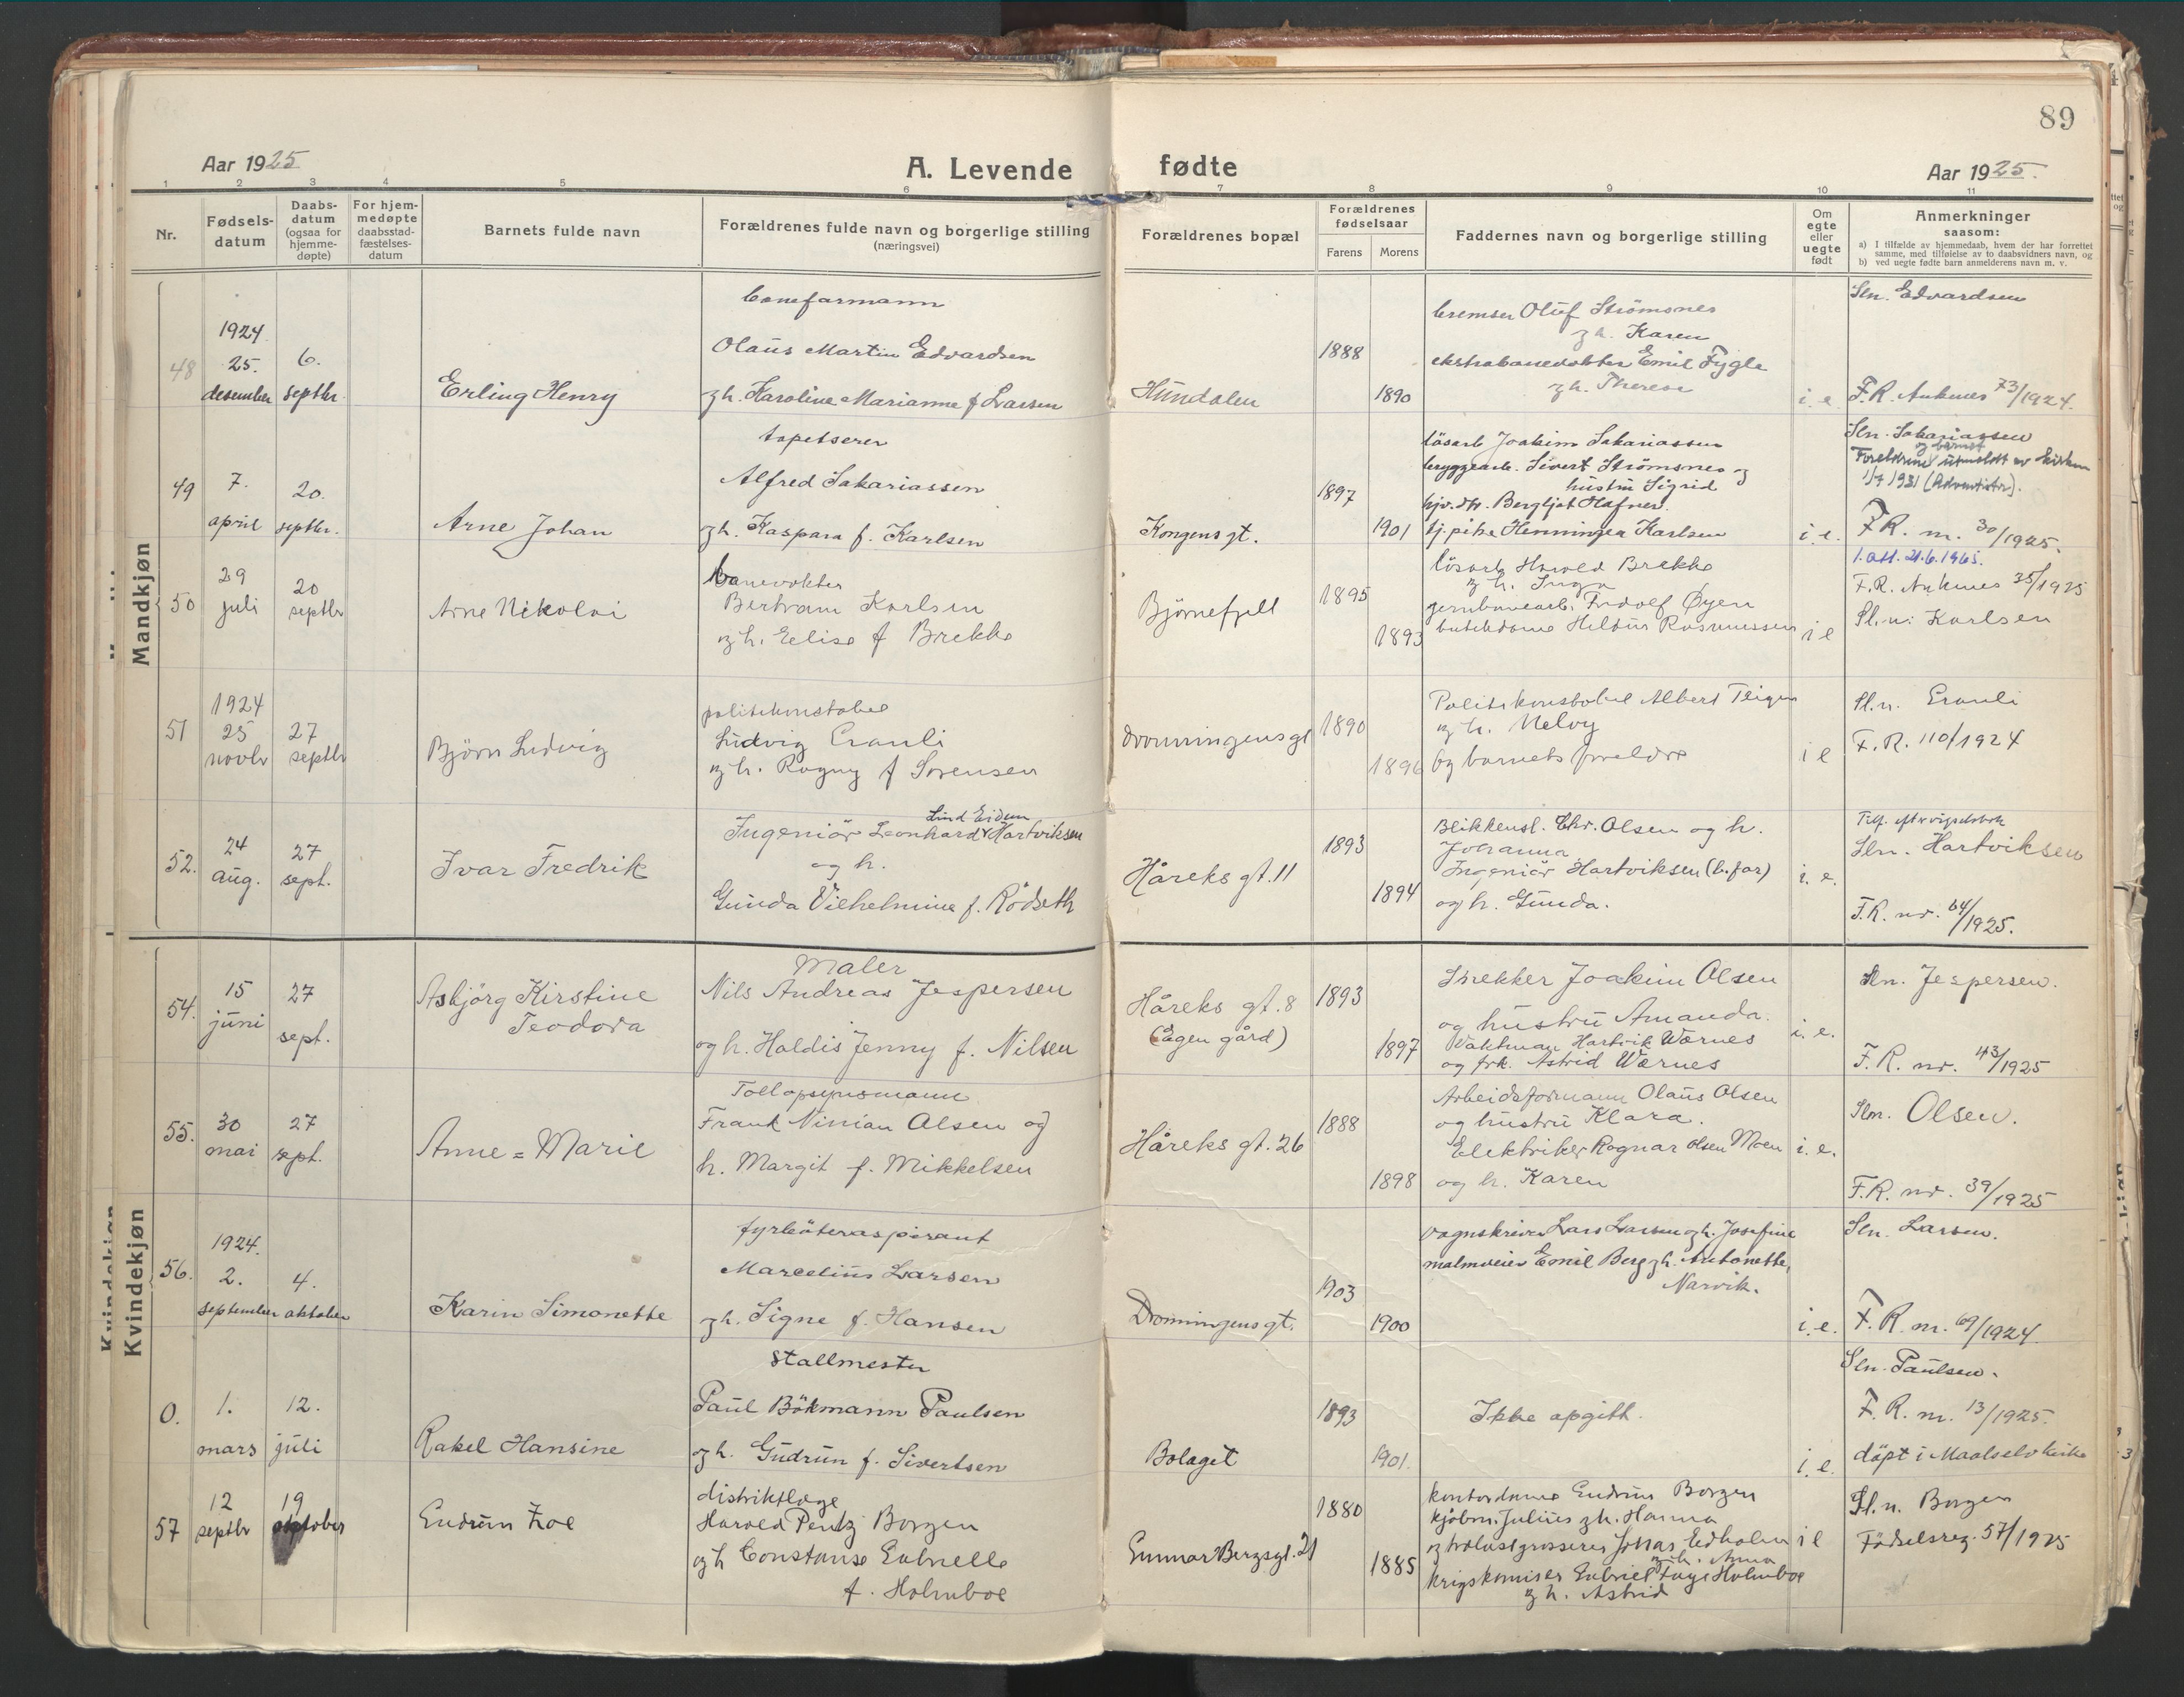 89
Aar 1925
A. Levende fødte
Aar 1925.
1 2 3 4 5 6 7 8 9 10 11
Nr.
Fødsels-
datum
Daabs-
datum
(ogsaa for
hjemme-
døpte)
For hjem-
medøpte
daabsstad-
fæstelses-
datum
Barnets fulde navn
Forældrenes fulde navn og borgerlige stilling
(næringsvei)
Forældrenes bopæl
Forældrenes
fødselsaar
Farens
Morens
Faddernes navn og borgerlige stilling
Om
egte
eller
uegte
født
Anmerkninger
saasom:
a) I tilfælde av hjemmedaab, hvem der har forrettet
samme, med tilføielse av to daabsvidners navn, og
b) ved uegte fødte barn anmelderens navn m. v.
Mandkjøn
48
1924
25.
desember
6.
septbr.
Erling Henry
Baneformann
Olaus Martin Edvardsen
og h. Karoline Marianne f Larsen
Hundalen
1888
1890
bremser Olüf Strömsnes
og h. Karen
ekstrabanevokter Emil Fygle
og h. Therese
i. e.
Sln. Edvardsen
F. R. Ankenes 73/1924.
49
7.
april
20.
septbr.
Arne Johan
tapetserer
Alfred Sakariassen
og h. Kaspara f. Karlsen
Kongens gt.
1897
1901
lösarb Joakim Sakariassen
bryggearb. Sivert Strömsnes og
hüstrü Sigrid
hjv. dtr. Bergljot Hafner
tj. pike Henningea Karlsen
i. e.
Sln. Sakariassen
og barnet
Foreldrene utmeldt av kirken
1/7 1931 (Adventister).
F R. nr. 30/1925.
1. att. 21.6.1965.
50
29
juli
20
septbr
Arne Nikolai
Banevokter
Bertram Karlsen
og h. Elise f Brekke
Björnefjell
1895
1893
lösarb Harald Brekke
og h. Inga
jernbanearb. Fridolf Øyen
butikkdame Hildur Rasmussen
i e
F.R. Ankenes 35/1925
Sl.n: Karlsen
51
1924
25
novbr
27
septbr
Björn Ludvig
politikonstabel
Ludvig Crauli
og h. Ragny f Sörensen
Dronningensgt
1890
1896
Politikonstabel Albert Teigen
og h. Nelvy
og barnets foreldre
i e
Sl.n. Crauli
F. R. 110/1924
52.
24
aug.
27
sept.
Ivar Fredrik
Lind Eidem
Ingeniör Leonhard Hartviksen
og h.
Gunda Vilhelmine f. Rödseth
Håreks gt. 11
1893
1894
Blikkensl. Chr. Olsen og h.
Johanna
Ingeniör Hartviksen (b. far)
og h. Gunda.
i. e.
Tilf. eft. vigselsbok
Sln. Hartviksen
F.R. nr. 64/1925.
Kvindekjøn
54.
15
juni
27
sept.
Asbjörg Kirstine
Teodora
Maler
Nils Andreas Jespersen
og h. Haldis Jenny f. Nilsen
Håreks gt. 8
(Egen gård)
1893
1897
Snekker Joakim Olsen
og hustru Amanda.
Vaktman Hartvik Wærnes
og frk. Astrid Wærnes
i. e.
Sln. Jespersen.
F. R. nr. 43/1925
55.
30
mai
27
sept.
Anne = Marie
Tollopsynsmann
Frank Ninian Olsen og
h. Margit f. Mikkelsen
Håreks gt. 26
1888
1898
Arbeidsformann Olaus Olsen
og hustru Klara.
Elektriker Ragnar Olsen Moen
og h. Karen
i. e.
Sln. Olsen.
F.R. nr. 39/1925
56.
1924.
2.
september
4.
oktober
Karin Simonette
fyrböteraspirant
Marcelius Larsen
og h. Signe f. Hansen
Dronningens gt.
1903
1900
vognskriver Lars Larsen og h. Josefine
malmveier Emil Berg og h. Antonette,
Narvik.
i. e.
Sln. Larsen.
F. R. nr. 69/1924.
0.
1.
mars
12.
juli
Rakel Hansine
Stallmester
Paul Bökmann Paulsen
og h. Gudrun f. Sivertsen
Bolaget
1893
1901.
Ikke opgitt.
i. e.
Sln. Paulsen.
F. R. nr. 13/1925.
döpt i Maalselv kirke
57
12
septbr
19
oktober
Gudrun Zoe
distriktlæge
Harald Pentz Borgen
og h Constanse Gabrielle
f. Holmboe
Gunnar Bergsgt. 21
1880
1885
kontordame Gudrun Borgen
kjöbm. Julius og h. Hanna
og trælastgrosserer Jonas Eidholm
og h. Anna
krigskomisær Gabriel Faye Holmboe
og h. Astrid
i e
Sl. n. Borgen
Födselsreg. 57/1925